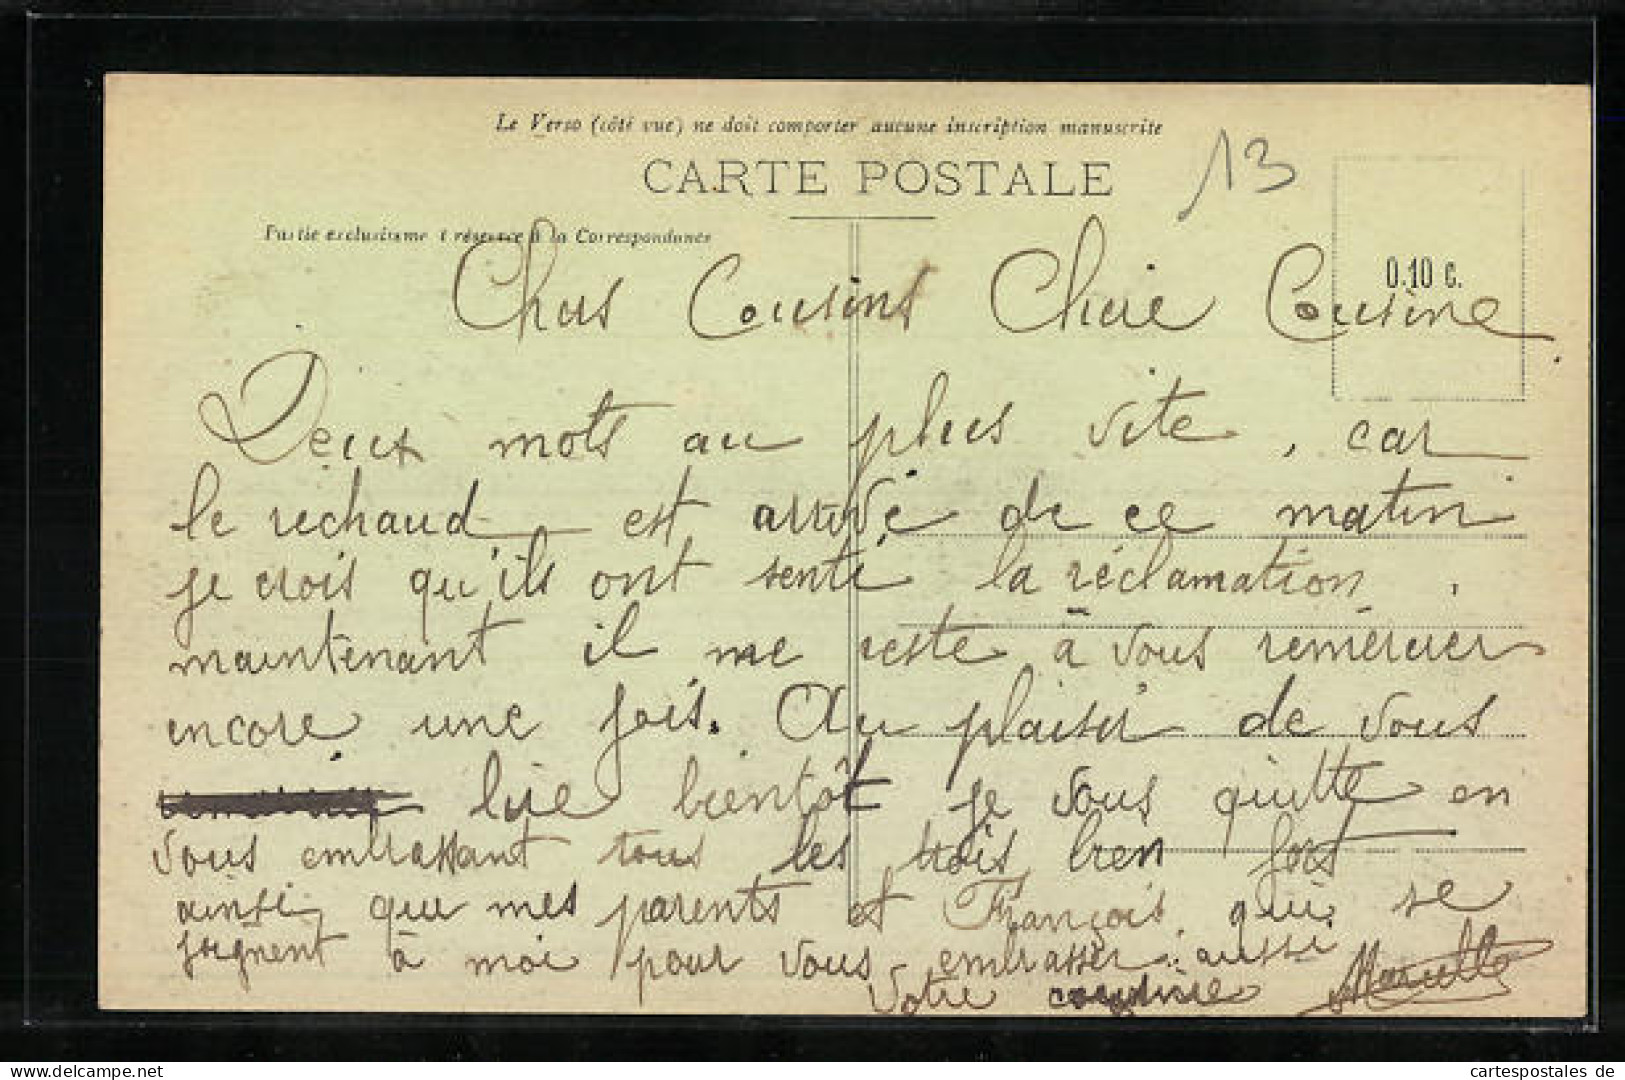 Le Verso (côté vue) ne doit comporter aucune inscription manuscrite
CARTE POSTALE
13
Partie exclusivement réservée à la Correspondance
0.10 c.
Chers Cousins Chère Cousine
Deux mots au plus vite, car
le réchaud est arrivé de ce matin
je crois qu'ils ont senti la réclamation.
maintenant il me reste à vous remercier
encore une fois. Au plaisir de vous
lire bientôt je vous quitte en
vous embrassant tous les trois bien fort
ainsi que mes parents et François qui se
joignent à moi pour vous embrasser aussi
Votre cousine Marcelle
hostingpics.net
cartespostales de